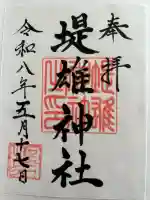 奉拝
堤雄神社
令和八年五月十七日